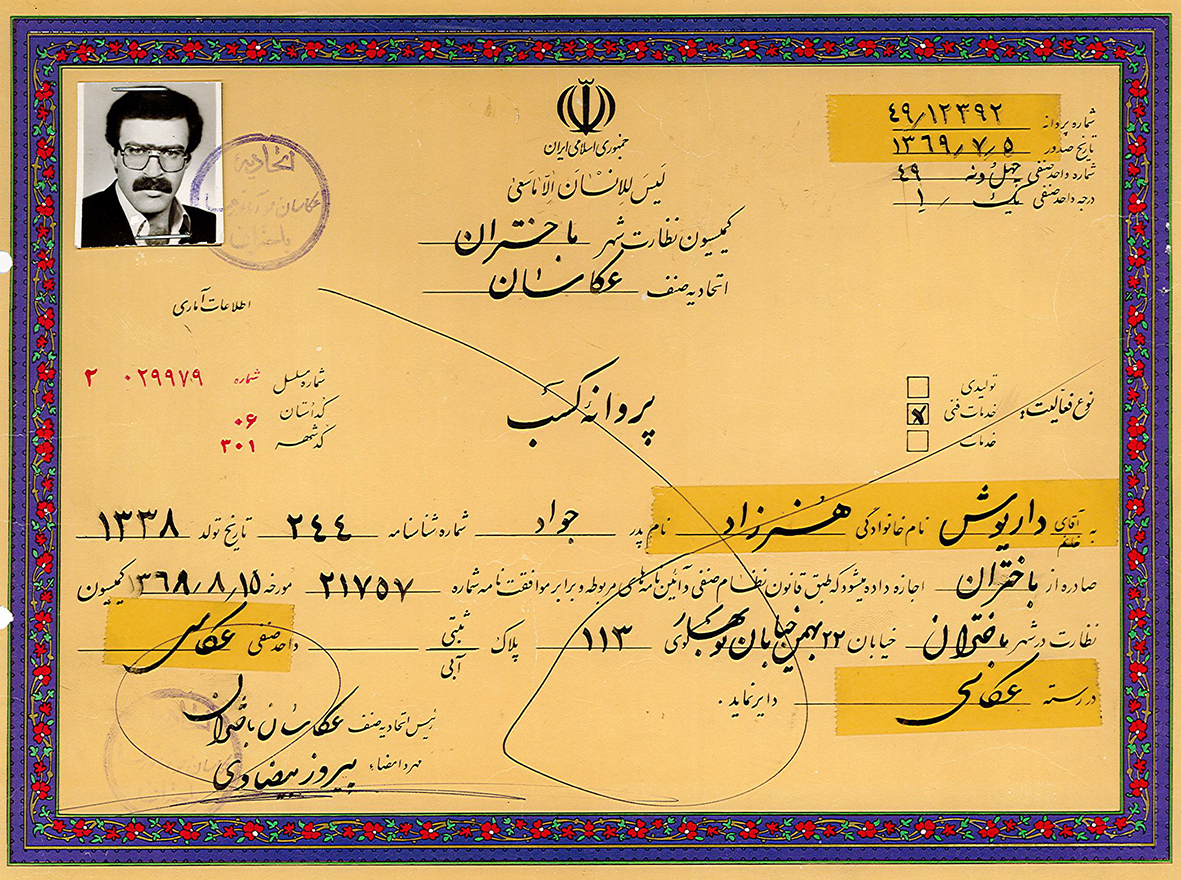 جمهوری اسلامی ایران
لَیسَ لِلاِنْسَانَ اِلاَّ مَاسَعَیٰ
کمیسیون نظارت شهر باختران
اتحادیه صنف عکاسان
شماره پروانه ۴۹/۱۲۳۹۲
تاریخ صدور ۱۳۶۹/۷/۵
شماره واحد صنفی چهل ونه ۴۹
درجه واحد صنفی یک ۱
اتحادیه
عکاسان
باختران
اطلاعات آماری
شماره مسلسل شماره ۰۲۹۹۷۹ ۲
کد استان ۰۶
کد شهر ۳۰۱
پروانه کسب
نوع فعالیت:
تولیدی
خدمات فنی
خدمات
به آقای خانم داریوش نام خانوادگی هنرزاد نام پدر جواد شماره شناسنامه ۲۴۴ تاریخ تولد ۱۳۳۸
صادره از باختران اجازه داده میشود که طبق قانون نظام صنفی و آئین نامه‌های مربوطه و برابر موافقت نامه شماره ۲۱۷۵۷ مورخه ۱۳۶۸/۸/۱۵ کمیسیون
نظارت در شهر باختران خیابان ۲۲ بهمن خیابان نوبهار کوی ۱۱۳ پلاک ثبتی آبی واحد صنفی عکاسی
در رسته عکاسی دایر نماید.
رئیس اتحادیه صنف عکاسان باختران
مهر و امضاء پیروز بیضاوی